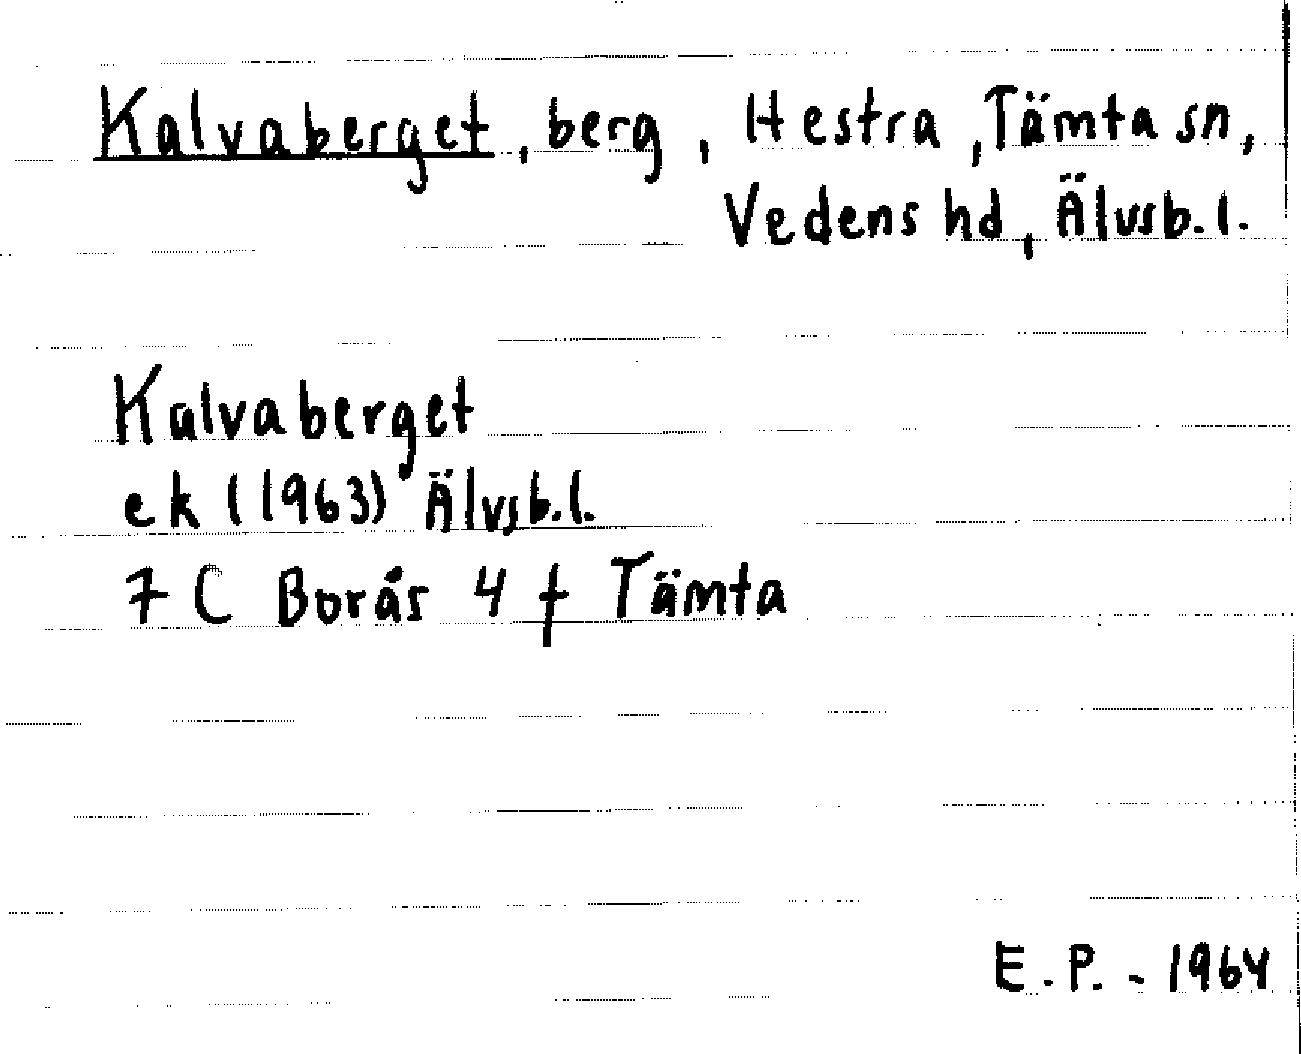 Kalvaberget, berg, Hestra, Tämta sn,
Vedens hd, Älvsb. l.
Kalvaberget
ek (1963) Älvsb. l.
7 C Borås 4 f Tämta
E. P. - 1964